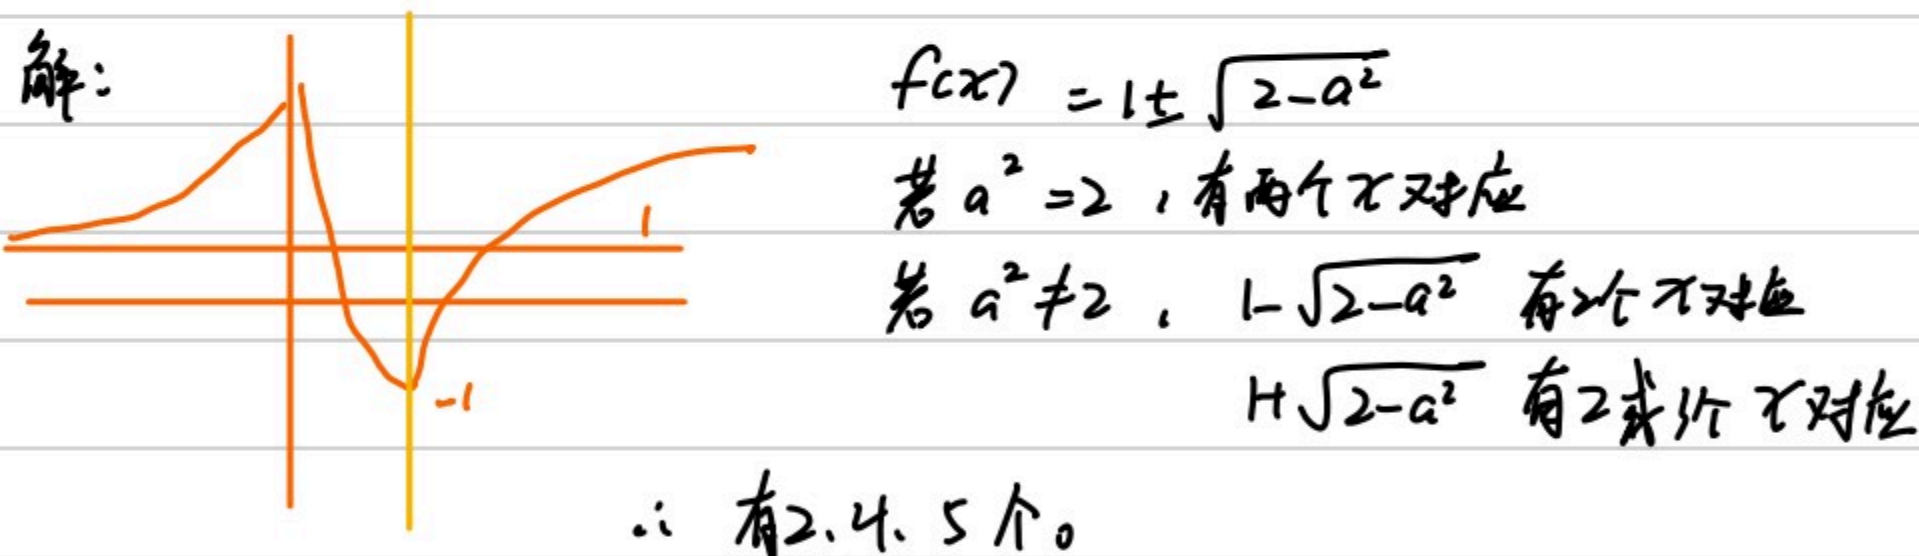 解:
f(x) = 1 ± √(2-a²)
若 a² = 2 , 有两个x对应
1
若 a² ≠ 2 , 1-√(2-a²) 有2个x对应
-1
1+√(2-a²) 有2或3个x对应
∴ 有2、4、5个。